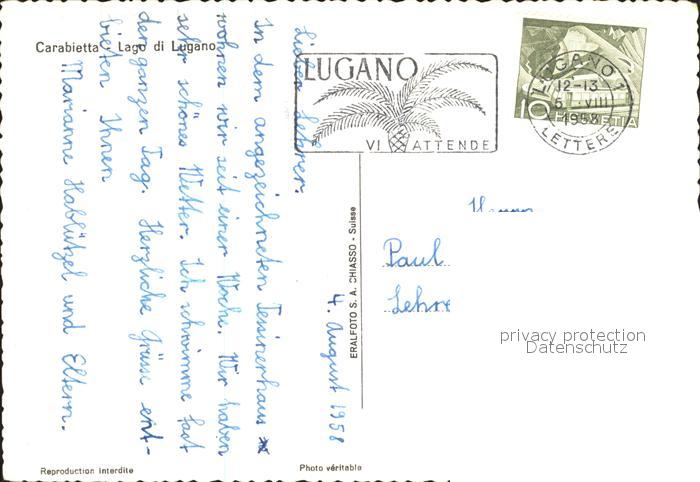 Carabietta - Lago di Lugano
LUGANO
VI ATTENDE
LUGANO 1
12-13
6. VIII
1958
LETTERE
10
HELVETIA
4. August 1958
Lieber Lehrer.
In dem angezeichneten Tessinerhaus x
wohnen wir seit einer Woche. Wir haben
sehr schönes Wetter. Ich schwimme fast
den ganzen Tag. Herzliche Grüsse ent-
bieten Ihnen
Marianne Hablützel und Eltern.
ERALFOTO S. A. CHIASSO - Suisse
Paul
privacy protection
Datenschutz
Reproduction interdite
Photo véritable